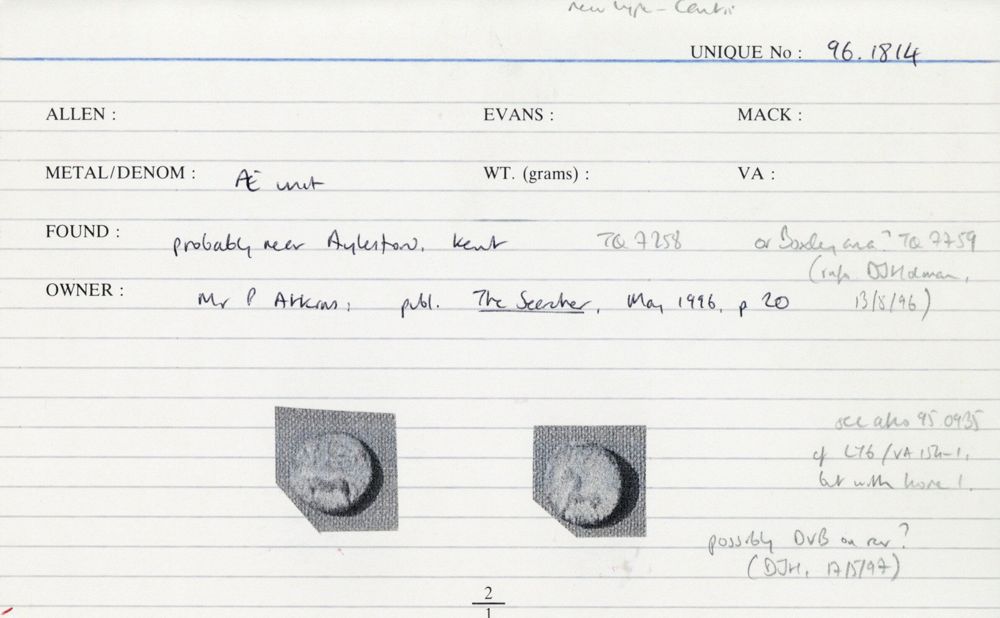 new type - Cantii
UNIQUE No : 96.1814
ALLEN : EVANS : MACK :
METAL/DENOM : Æ unit WT. (grams) : VA :
FOUND : probably near Aylesford, Kent TQ 7258 or Boxley area? TQ 7759
(info DJHolman,
OWNER : Mr P Atkins; publ. The Searcher, May 1996, p 20 13/8/96)
see also 95.0935
cf L76/VA 154-1,
but with horse l.
possibly DVB on rev?
(DJH, 17/5/97)
2
1